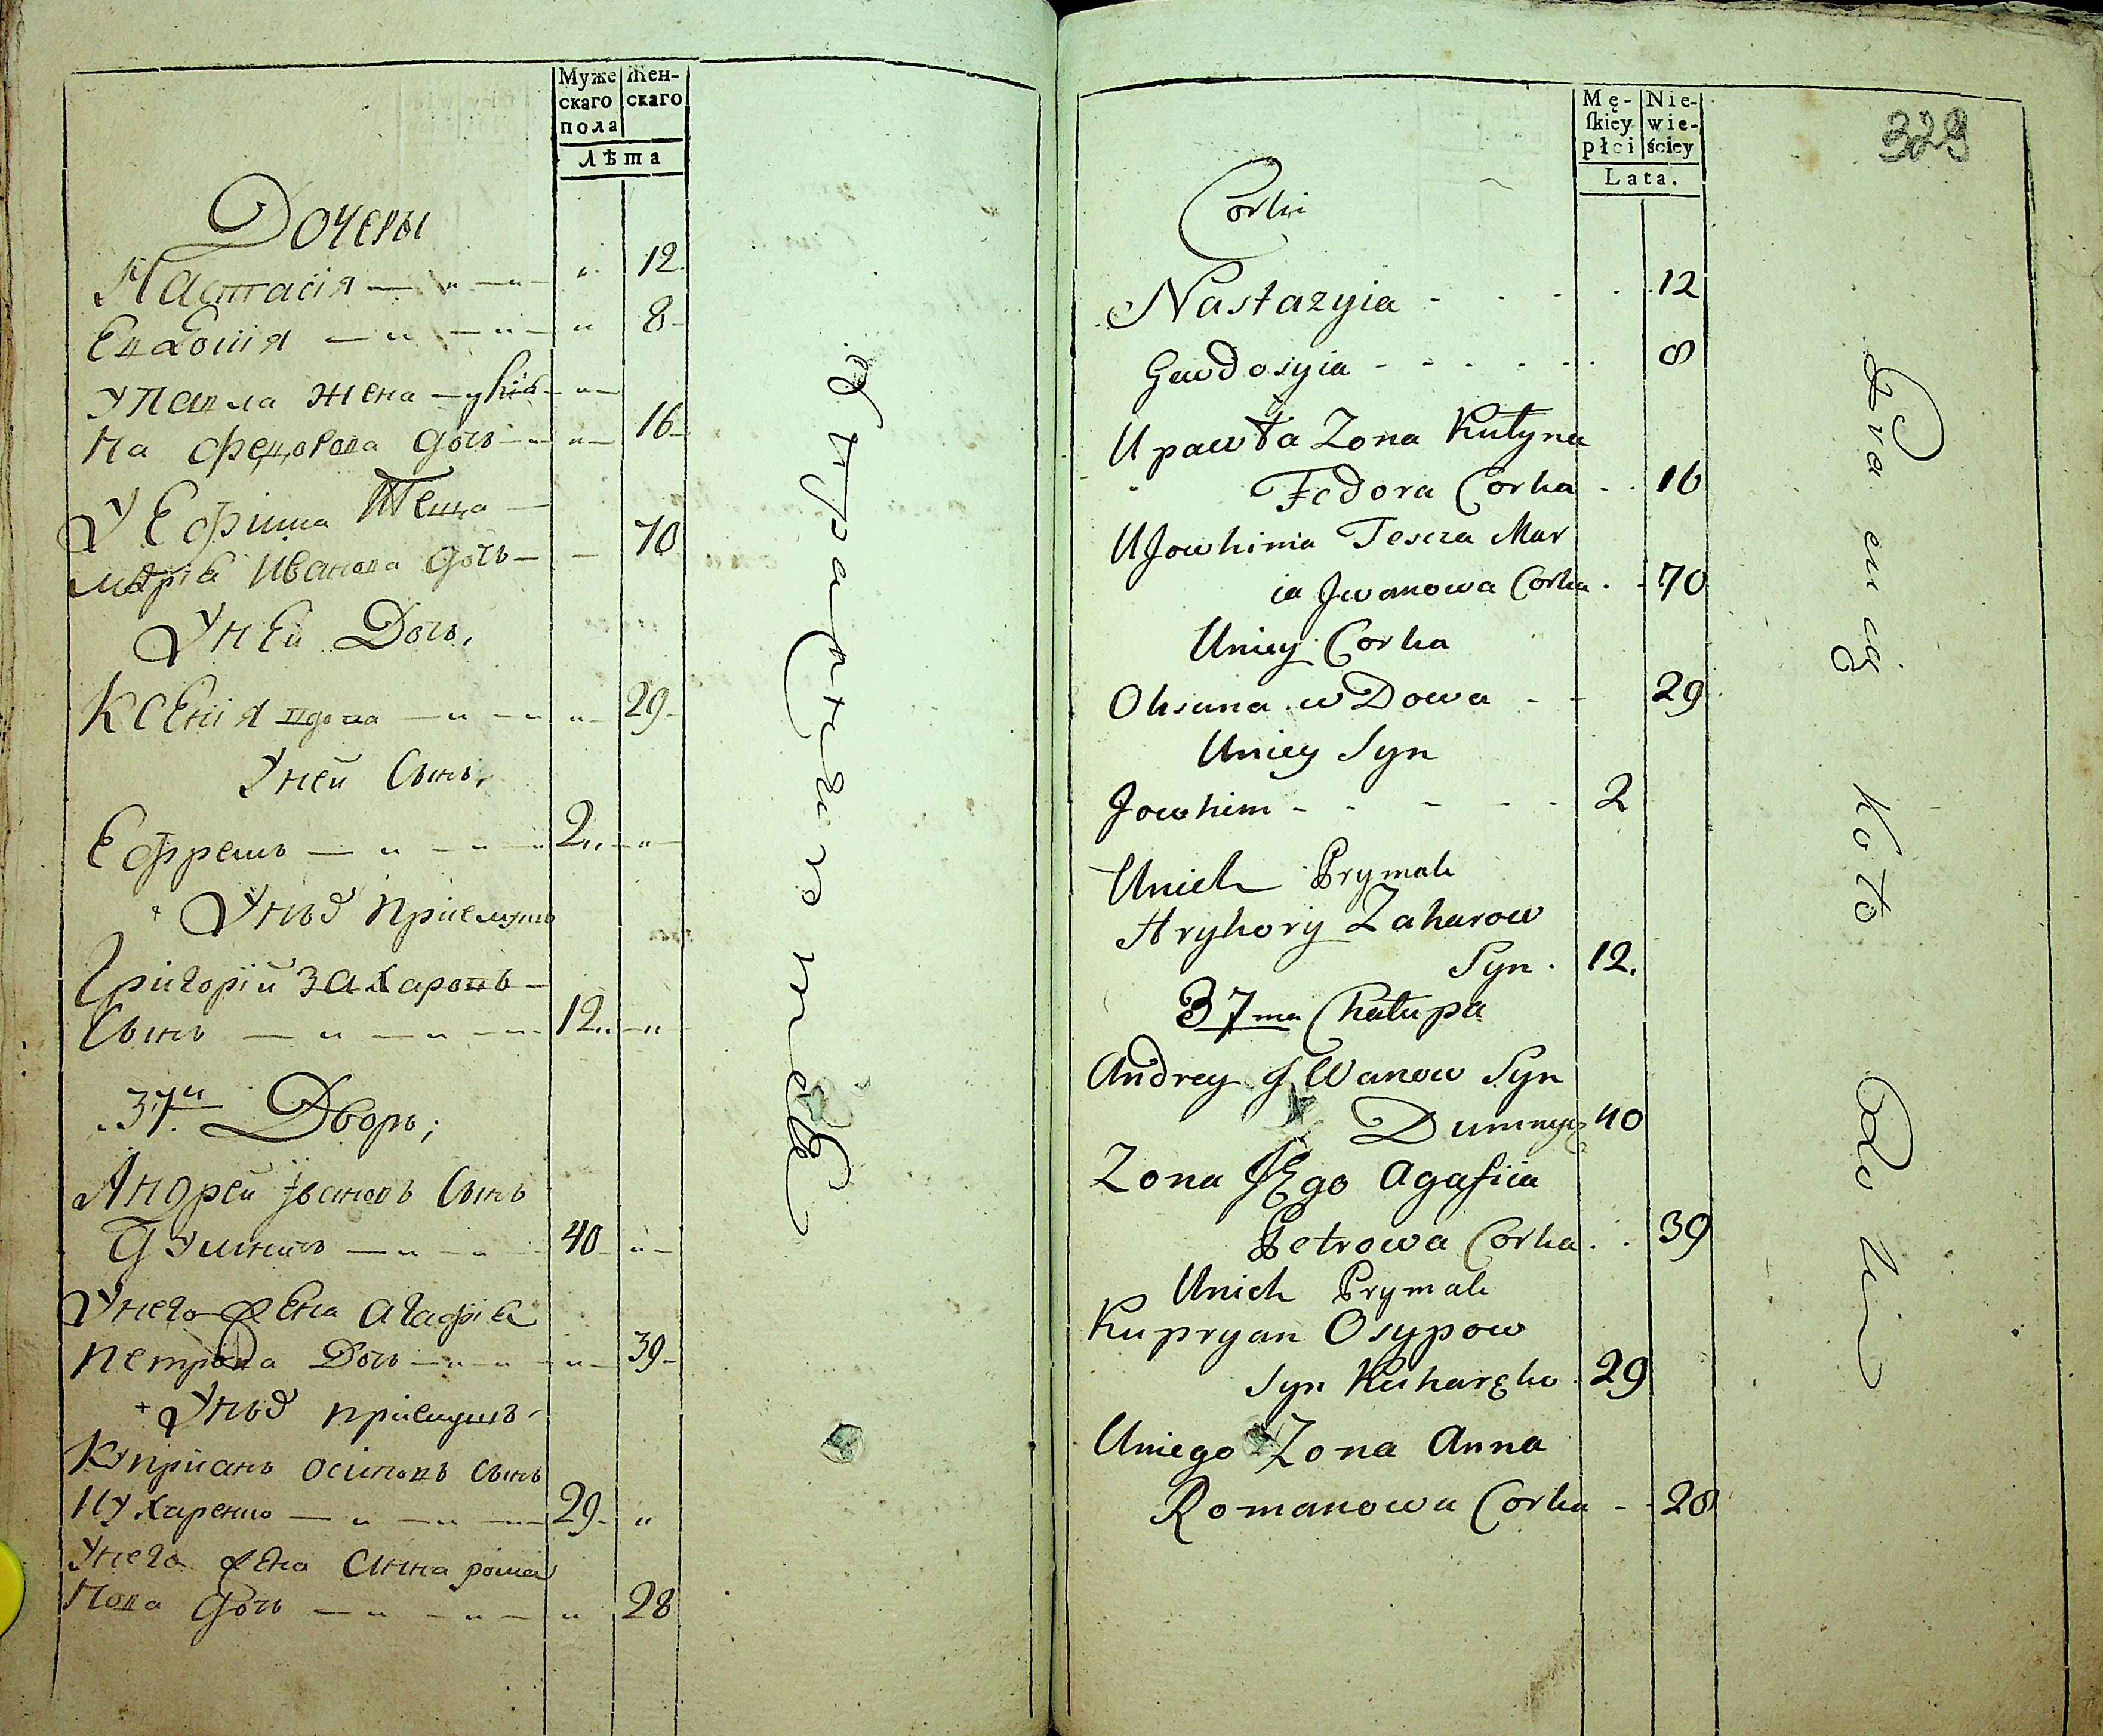 Муже
скаго
пола
Жен-
скаго
лѣта
Дочеры
Настасія 12
Евдокия 8
У Павла жена
на Федорова дочь 16
У Ефима Теща
марія Иванова дочь 70
У ней Дочь,
Ксенія вдова 29
У ней Сынъ,
Ефремъ 2
+ У нихъ приемышъ
Григорій Захаровъ
Сынъ 12
37й Дворъ;
Андрей Ивановъ Сынъ
40
У него жена Агафія
Петрова Дочь 39
+ У нихъ приемышъ
Куприанъ Осиповъ сынъ
Кухаренко 29
У него жена Анна рома
нова дочь 28
Mę-
ſkiey
płci
Nie-
wie-
ściey
Lata.
329
Corki
Nastazyia 12
Gewdosyia 8
U pawła Zona Kułyna
Fedora Corka 16
U Jowhima Tescza Mar
ia Jwanowa Corka 70
Uniey Corka
Oksana wDowa 29
Uniey Syn
Jowhim 2
Unich Prymak
Hryhory Zaharow
Syn 12.
37ma Chałupa
Andrey JWanow Syn
40
Zona JEgo Agafiia
Petrowa Corka 39
Unich Prymak
Kupryan Osypow
Syn Kuharęko 29
Uniego Zona Anna
Romanowa Corka 28